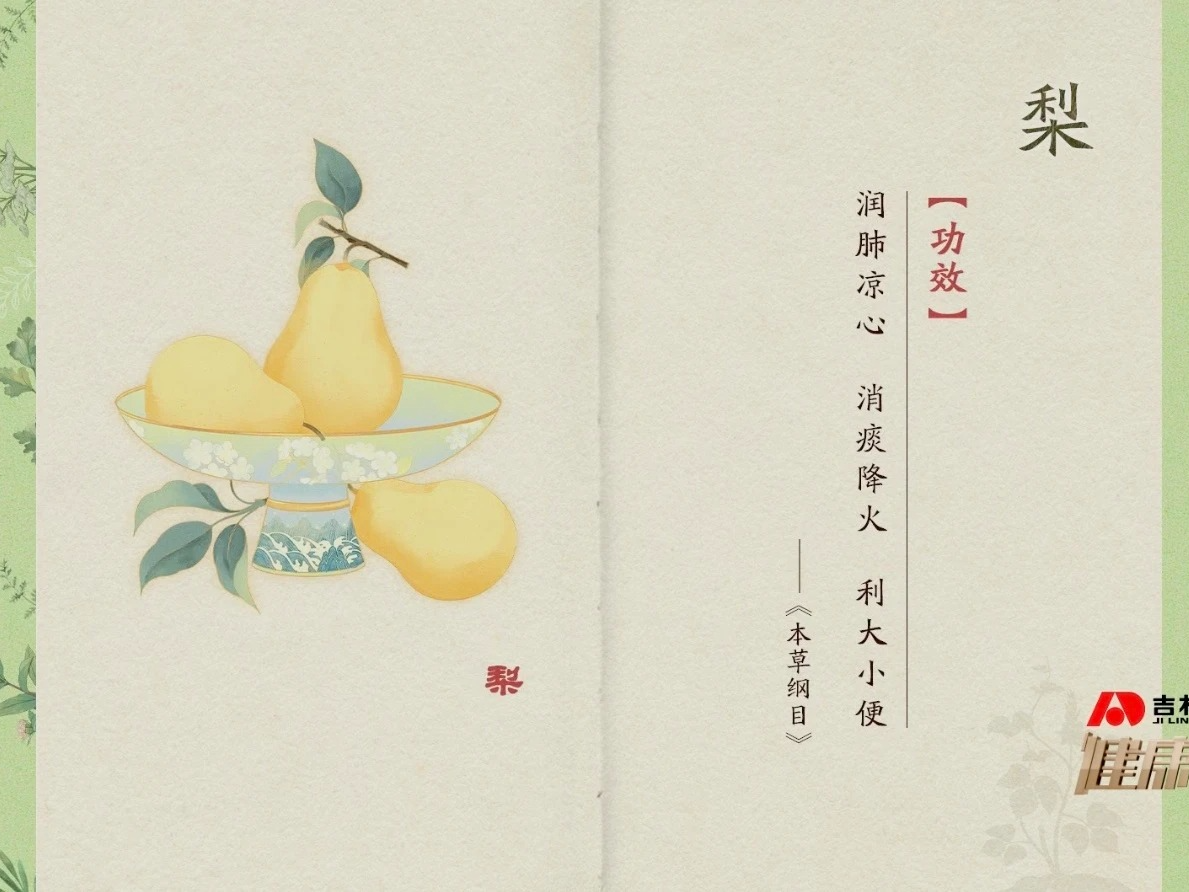 梨
【功效】
润肺凉心 消痰降火 利大小便
——《本草纲目》
梨
吉
JI LIN
健康